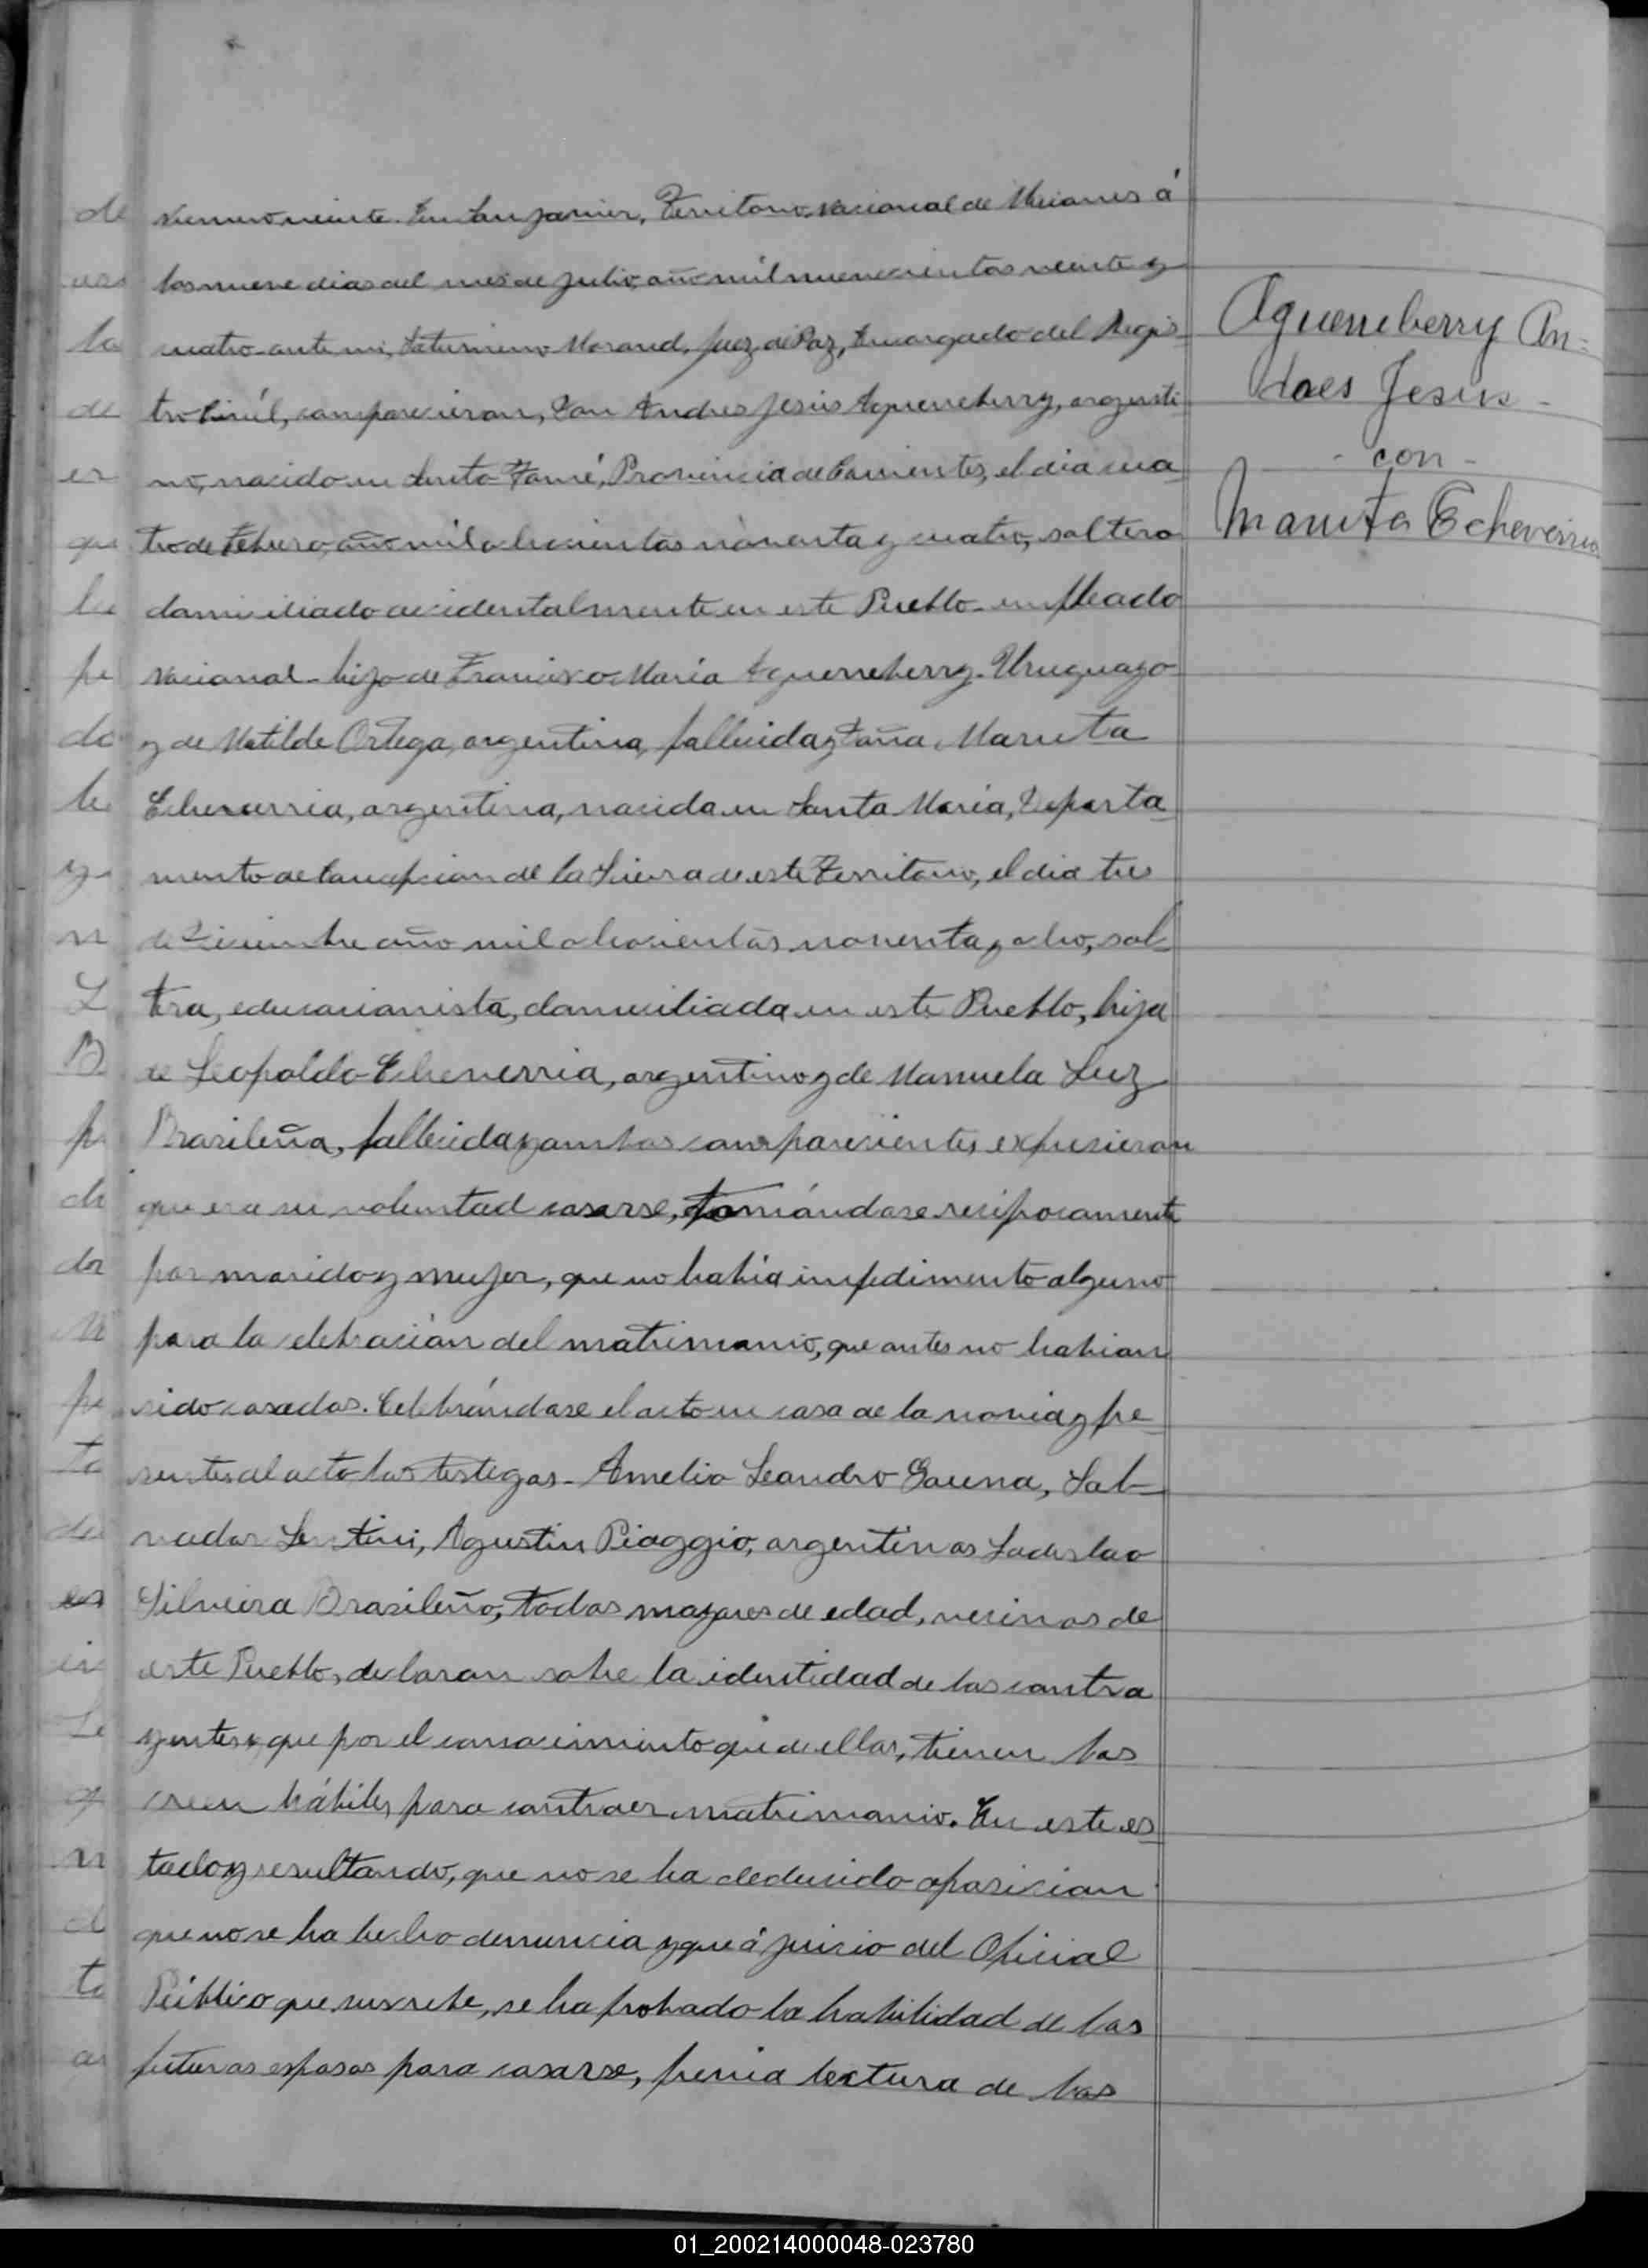 Numero veinte. En San Javier, Territorio Nacional de Misiones á
los nueve dias del mes de Julio, año mil nuevecientos veinte y
cuatro ante mi, Saturnino Morand, Juez de Paz, Encargado del Regis-
tro Civil, comparecieron, Don Andres Jesús Aguerreberry, argenti
no, nacido en Santo Tomé, Provincia de Corrientes, el dia cua-
tro de Febrero, año mil ochocientos noventa y cuatro, soltero
domiciliado accidentalmente en este Pueblo - empleado
Nacional - hijo de Francisco María Aguerreberry - Uruguayo
y de Matilde Ortega, argentina, fallecida y Doña Maruta
Echeverria, argentina, nacida en Santa María, Departa-
mento de Concepcion de la Sierra de este Territorio, el dia tres
de Diciembre año mil ochocientos noventa y ocho, sol-
tera, educacionista, domiciliada en este Pueblo, hija
de Leopoldo Echeverria, argentino y de Manuela Luz
Brasileña, fallecida y ambos comparecientes expusieron
que era su voluntad casarse, tomándose reciprocamente
por marido y mujer, que no había impedimento alguno
para la celebración del matrimonio, que antes no habian
sido casados. Celebrándose el acto en casa de la novia y pre-
sentes al acto los testigos - Amelio Leandro Gauna, Sal-
vador Sentini, Agustin Piaggio, argentinos Ladislao
Silveira Brasileño, todos mayores de edad, vecinos de
este Pueblo, declaran sobre la identidad de los contra
yentes y que por el conocimiento que de ellos, tienen los
creen hábiles para contraer matrimonio. En este es-
tado y resultando, que no se ha deducido oposicion
que no se ha hecho denuncia y que á juicio del Oficial
Público que suscribe, se ha probado la habilidad de los
futuros esposos para casarse, previa lectura de los
Aguerreberry An=
dres Jesús -
- con -
Maruta Echeverria
01_200214000048-023780